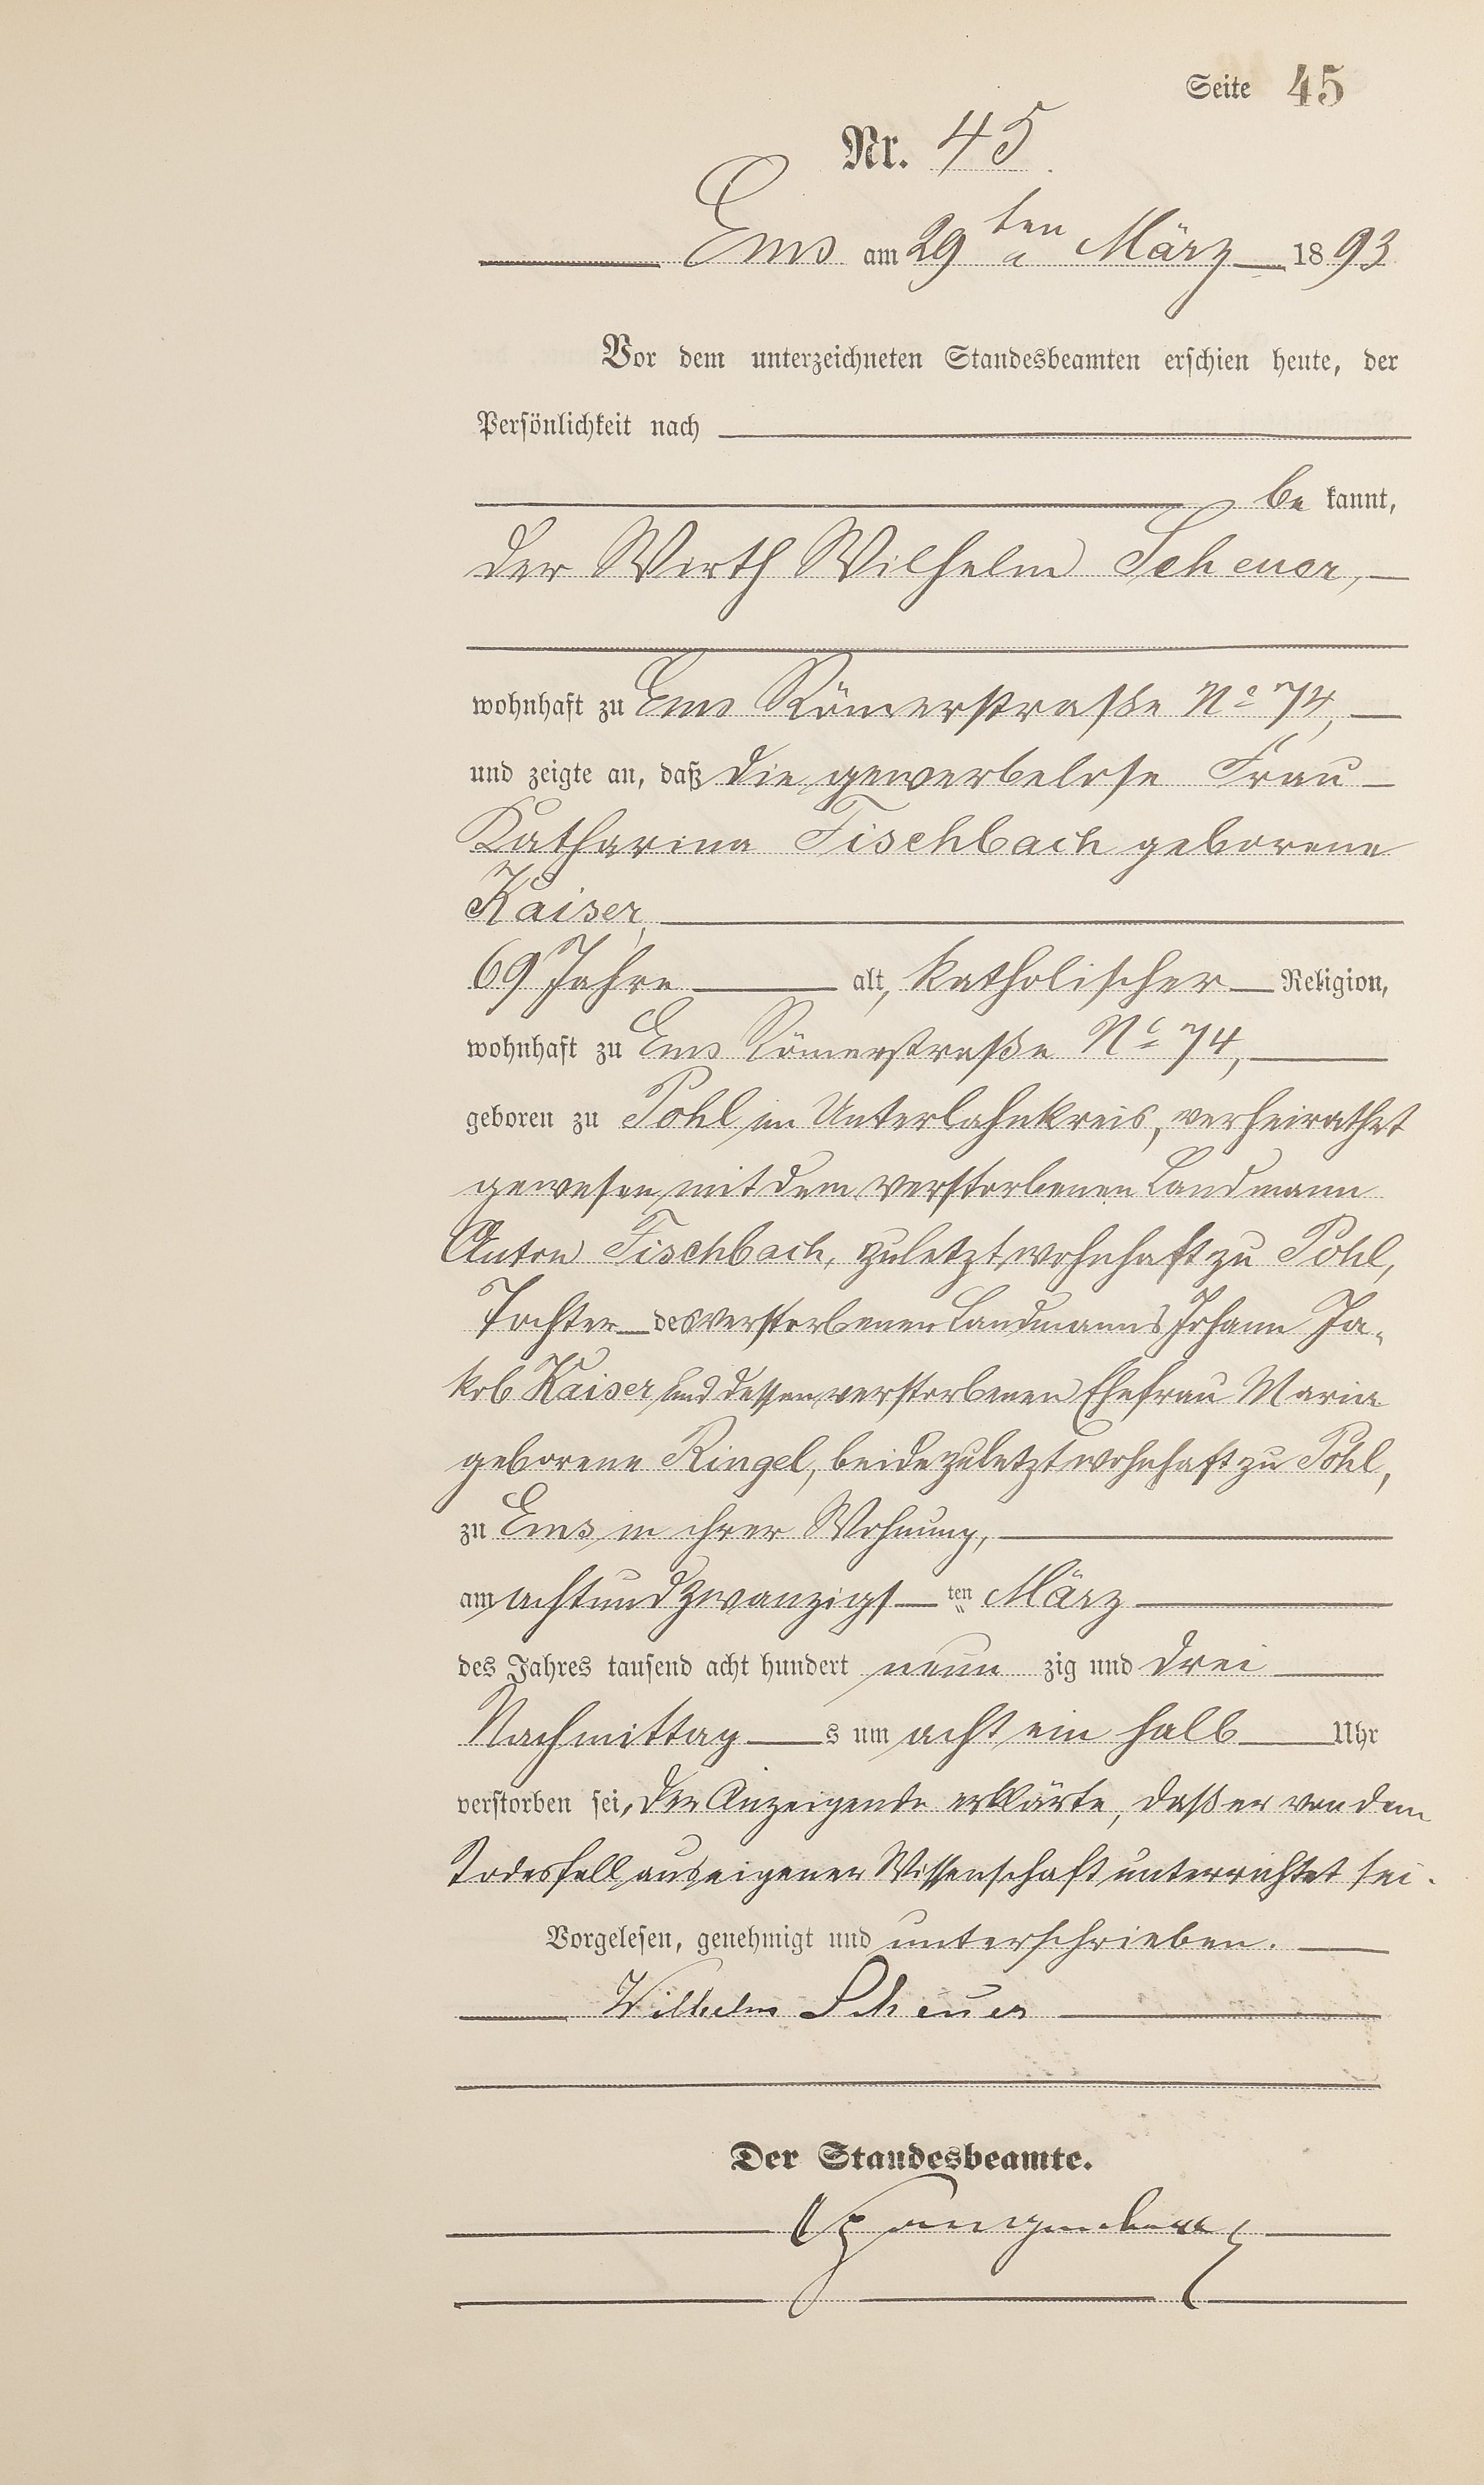 Seite 45
Nr. 45.
Ems am 29ten März 1893
Vor dem unterzeichneten Standesbeamten erschien heute, der
Persönlichkeit nach
be kannt,
der Wirth Wilhelm Scheuer,
wohnhaft zu Ems Römerstraße No 74,
und zeigte an, daß die gewerbelose Frau
Katharina Fischbach geborene
Kaiser,
69 Jahre alt, katholischer Religion,
wohnhaft zu Ems Römerstraße No 74,
geboren zu Pohl im Unterlahnkreis, verheirathet
gewesen mit dem verstorbenen Landmann
Anton Fischbach, zuletzt wohnhaft zu Pohl,
Tochter des verstorbenen Landmanns Johann Ja-
kob Kaiser und dessen verstorbenen Ehefrau Maria
geborene Ringel, beide zuletzt wohnhaft zu Pohl,
zu Ems in ihrer Wohnung,
am achtundzwanzigsten März
des Jahres tausend acht hundert neun zig und drei
Nachmittag s um acht ein halb Uhr
verstorben sei, der Anzeigende erklärte, daß er von dem
Todesfall aus eigener Wissenschaft unterrichtet sei.
Vorgelesen, genehmigt und unterschrieben.
Wilhelm Scheuer
Der Standesbeamte.